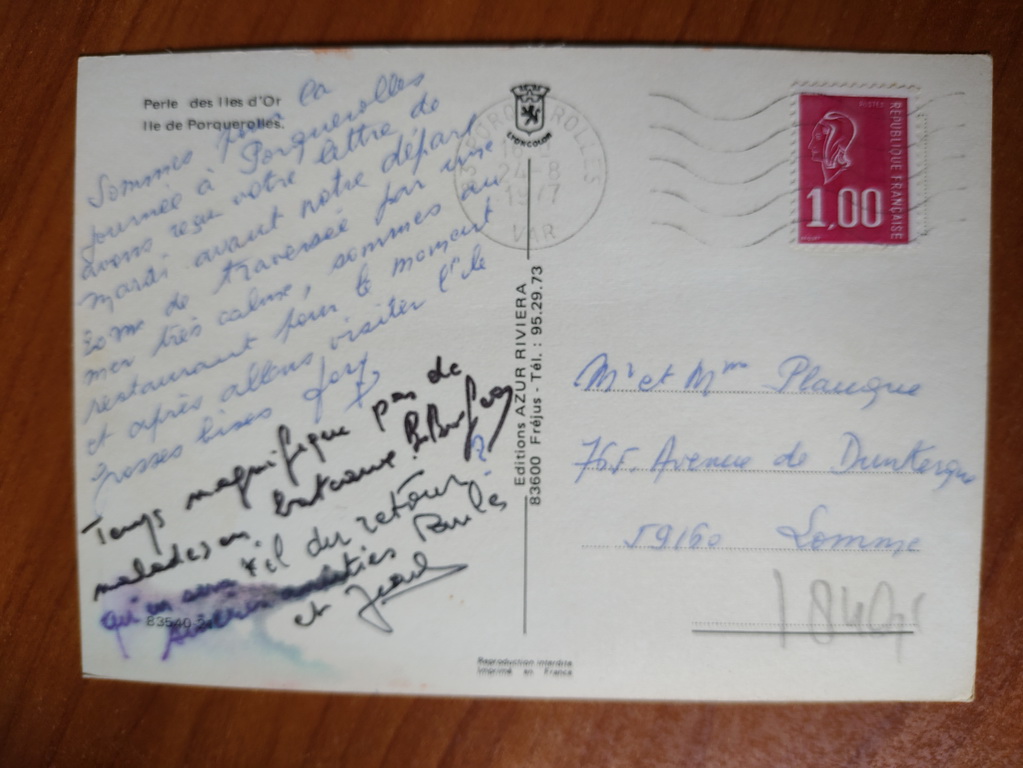 Perle des Iles d'Or
Ile de Porquerolles.
Sommes pour la
journée à Porquerolles
avons reçu votre lettre de
mardi avant notre départ
de traversée par une
mer très calme, sommes au
restaurant pour le moment
et après allons visiter l'île
grosses bises
Temps magnifique pas de
malades en
qu'en sera t'il du retour
et
83540
LYONCOLOR
PORQUEROLLES
24-8
1977
VAR
Editions AZUR RIVIERA
83600 Fréjus - Tél. : 95.29.73
Reproduction interdite
Imprimé en France
POSTES
REPUBLIQUE FRANÇAISE
1,00
Mr et Mme Planque
765. Avenue de Dunkerque
59160 Lomme
1840